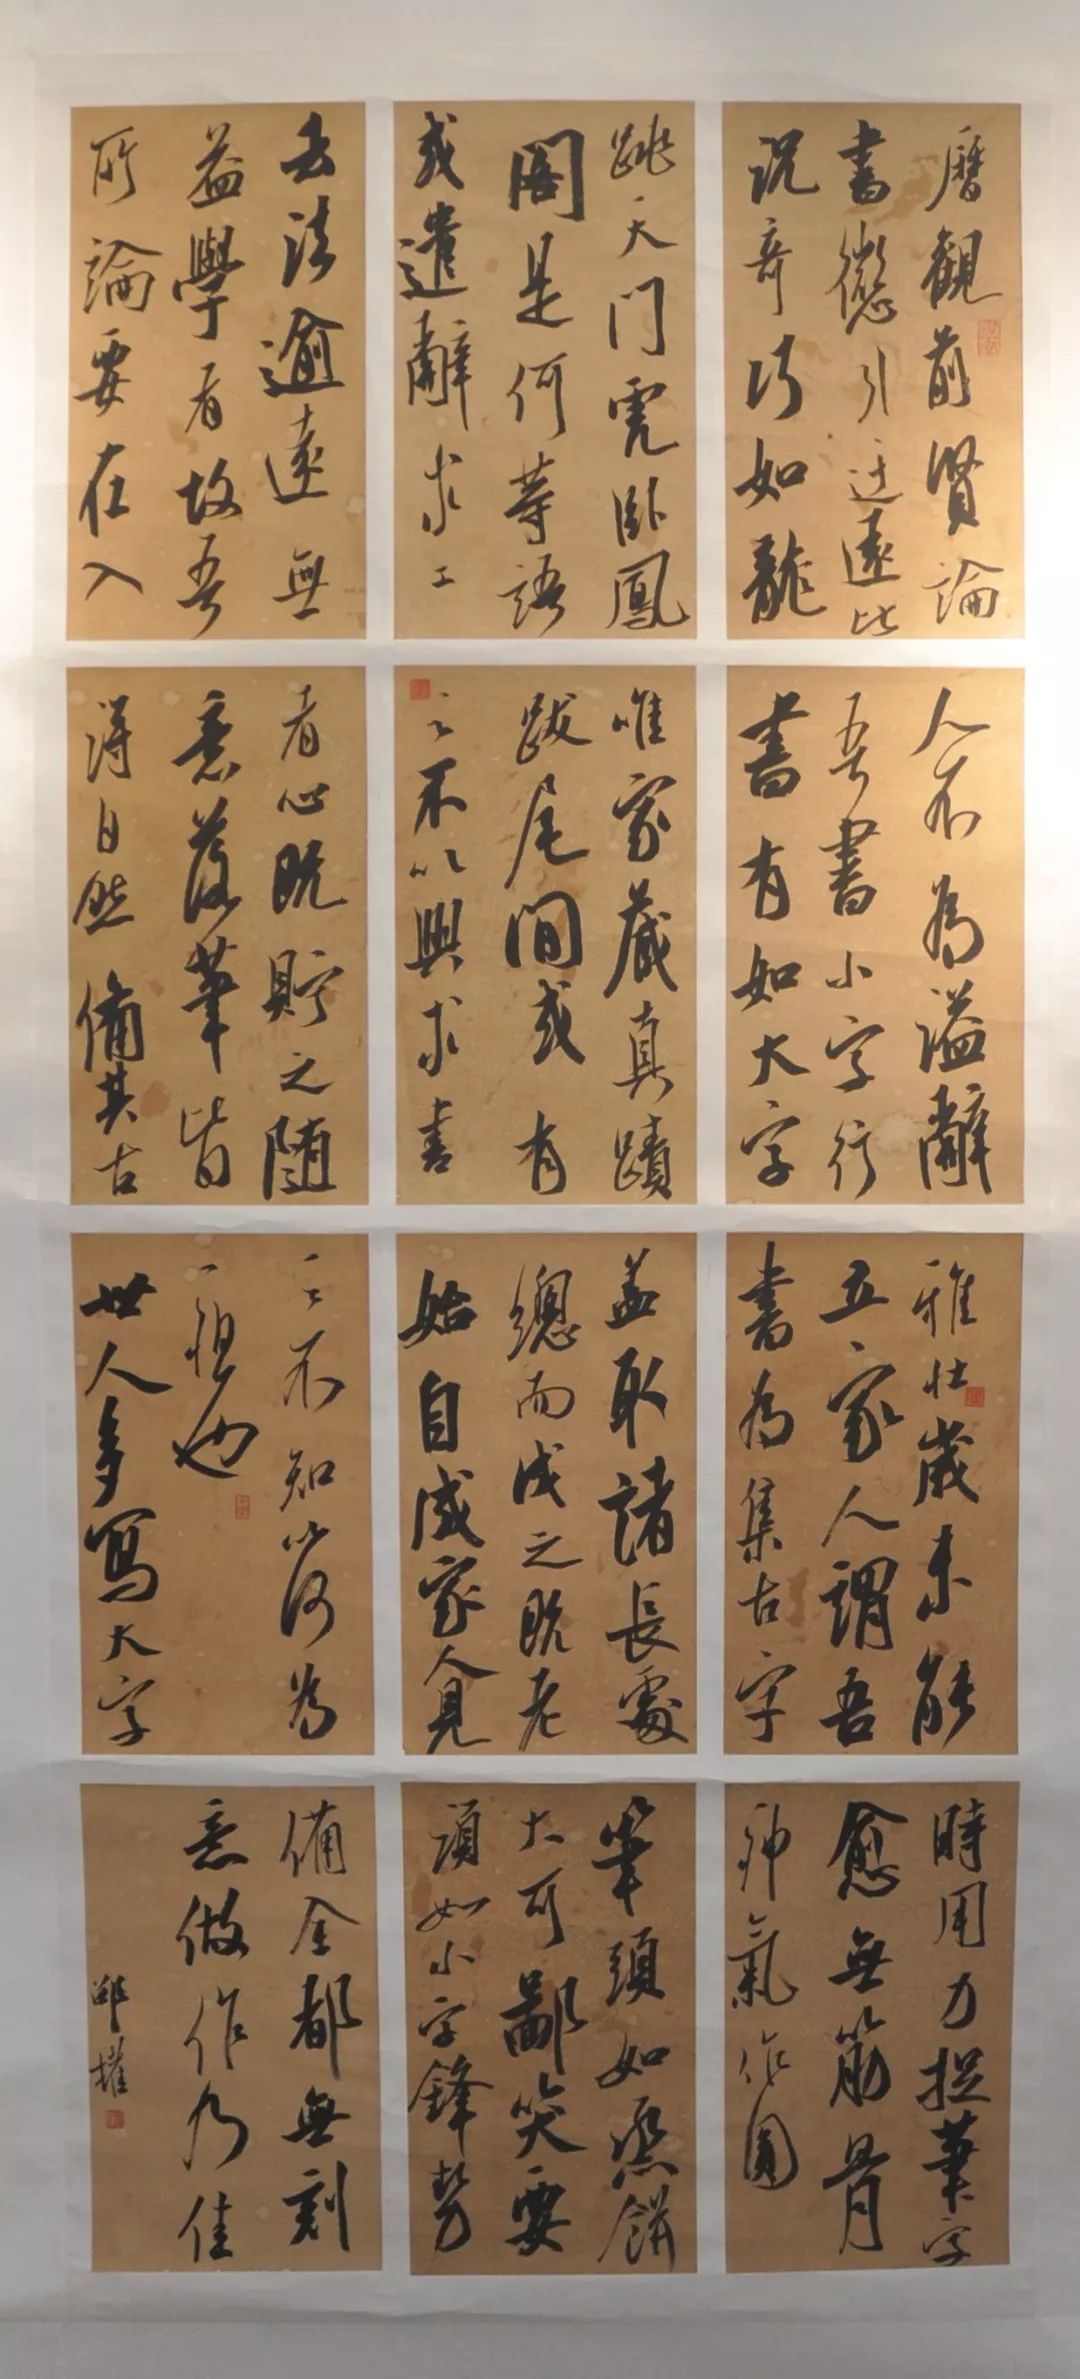 曆觀前賢論
書徵引迂遠比
況奇巧如龍
跳天門虎卧鳳
閣是何等語
或遣辭求工
去法逾遠無
益學者故吾
所論要在入
人不為溢辭
吾書小字行
書有如大字
唯家藏真蹟
跋尾間或有
之不以與求書
者心既貯之随
意落筆皆
得自然備其古
雅壮歲未能
立家人謂吾
書為集古字
盖取諸長處
總而成之既老
始自成家人見
之不知以何為
祖也
世人多寫大字
時用力捉筆字
愈無筋骨
神氣作圓
筆頭如蒸餅
大可鄙笑要
須如小字鋒勢
備全都無刻
意做作乃佳
邵權